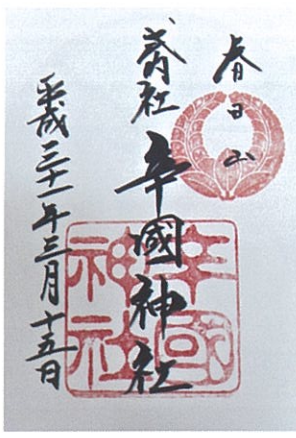 春日山
式内社
辛國神社
平成三十一年三月十五日
辛國
神社